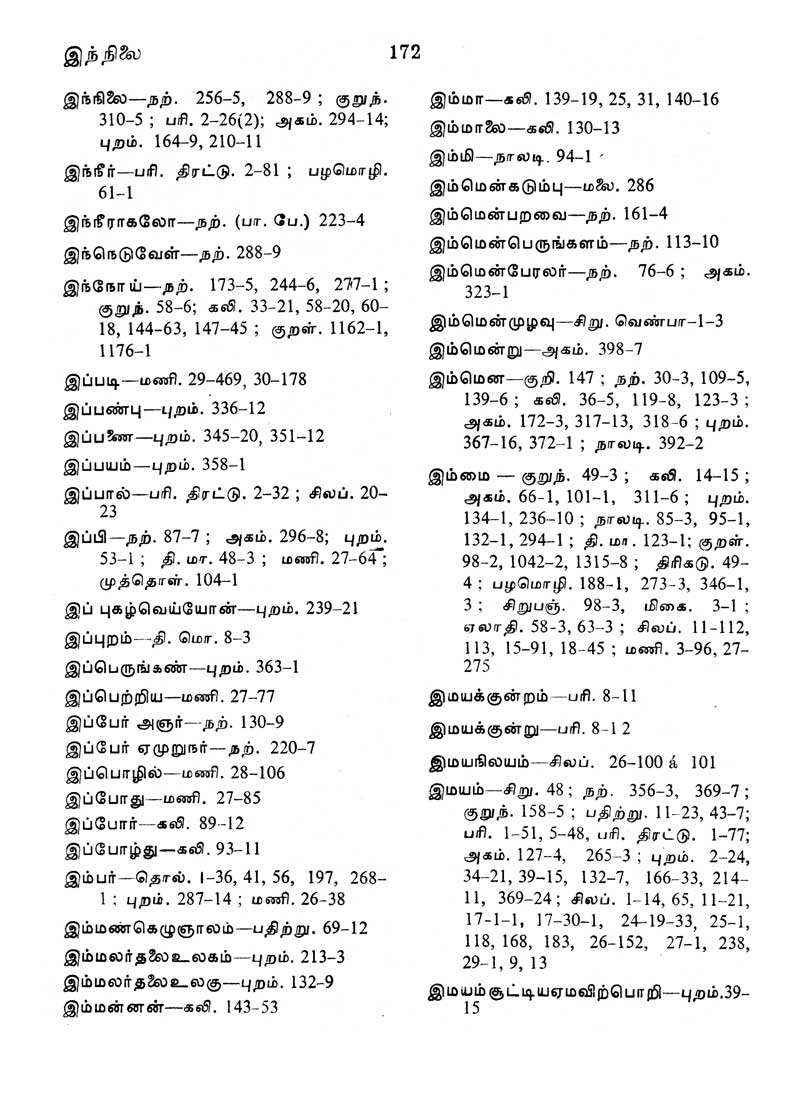 இந்நிலை 172
இந்நிலை—நற். 256–5, 288–9 ; குறுந்.
310–5 ; பரி. 2–26(2); அகம். 294–14;
புறம். 164–9, 210–11
இந்நீர்—பரி. திரட்டு. 2–81 ; பழமொழி.
61–1
இந்நீராகலோ—நற். (பா. பே.) 223–4
இந்நெடுவேள்—நற். 288–9
இந்நோய்—நற். 173–5, 244–6, 277–1 ;
குறுந். 58–6; கலி. 33–21, 58–20, 60–
18, 144–63, 147–45 ; குறள். 1162–1,
1176–1
இப்படி—மணி. 29–469, 30–178
இப்பண்பு—புறம். 336–12
இப்பணை—புறம். 345–20, 351–12
இப்பயம்—புறம். 358–1
இப்பால்—பரி. திரட்டு. 2–32 ; சிலப். 20–
23
இப்பி—நற். 87–7 ; அகம். 296–8; புறம்.
53–1 ; தி. மா. 48–3 ; மணி. 27–64 ;
முத்தொள். 104–1
இப் புகழ்வெய்யோன்—புறம். 239–21
இப்புறம்—தி. மொ. 8–3
இப்பெருங்கண்—புறம். 363–1
இப்பெற்றிய—மணி. 27–77
இப்பேர் அஞர்—நற். 130–9
இப்பேர் ஏமுறுநர்—நற். 220–7
இப்பொழில்—மணி. 28–106
இப்போது—மணி. 27–85
இப்போர்—கலி. 89–12
இப்போழ்து—கலி. 93–11
இம்பர்—தொல். 1–36, 41, 56, 197, 268–
1 : புறம். 287–14 ; மணி. 26–38
இம்மண்கெழுஞாலம்—பதிற்று. 69–12
இம்மலர்தலைஉலகம்—புறம். 213–3
இம்மலர்தலைஉலகு—புறம். 132–9
இம்மன்னன்—கலி. 143–53
இம்மா—கலி. 139–19, 25, 31, 140–16
இம்மாலை—கலி. 130–13
இம்மி—நாலடி. 94–1
இம்மென்கடும்பு—மலை. 286
இம்மென்பறவை—நற். 161–4
இம்மென்பெருங்களம்—நற். 113–10
இம்மென்பேரலர்—நற். 76–6 ; அகம்.
323–1
இம்மென்முழவு—சிறு. வெண்பா–1–3
இம்மென்று—அகம். 398–7
இம்மென—குறி. 147 ; நற். 30–3, 109–5,
139–6 ; கலி. 36–5, 119–8, 123–3 ;
அகம். 172–3, 317–13, 318–6 ; புறம்.
367–16, 372–1 ; நாலடி. 392–2
இம்மை — குறுந். 49–3 ; கலி. 14–15 ;
அகம். 66-1, 101–1, 311–6 ; புறம்.
134–1, 236–10 ; நாலடி. 85–3, 95–1,
132–1, 294–1 ; தி. மா. 123–1; குறள்.
98–2, 1042–2, 1315–8 ; திரிகடு. 49–
4 ; பழமொழி. 188–1, 273–3, 346–1,
3 ; சிறுபஞ். 98–3, மிகை. 3–1 ;
ஏலாதி. 58–3, 63–3 ; சிலப். 11–112,
113, 15–91, 18–45 ; மணி. 3–96, 27–
275
இமயக்குன்றம்—பரி. 8–11
இமயக்குன்று—பரி. 8–12
இமயநிலயம்—சிலப். 26–100 & 101
இமயம்—சிறு. 48 ; நற். 356–3, 369–7 ;
குறுந். 158–5 ; பதிற்று. 11–23, 43–7;
பரி. 1–51, 5–48, பரி. திரட்டு. 1–77;
அகம். 127–4, 265–3 ; புறம். 2–24,
34–21, 39–15, 132–7, 166–33, 214–
11, 369–24 ; சிலப். 1–14, 65, 11–21,
17–1–1, 17–30–1, 24–19–33, 25–1,
118, 168, 183, 26–152, 27–1, 238,
29–1, 9, 13
இமயம்சூட்டியஏமவிற்பொறி—புறம்.39–
15